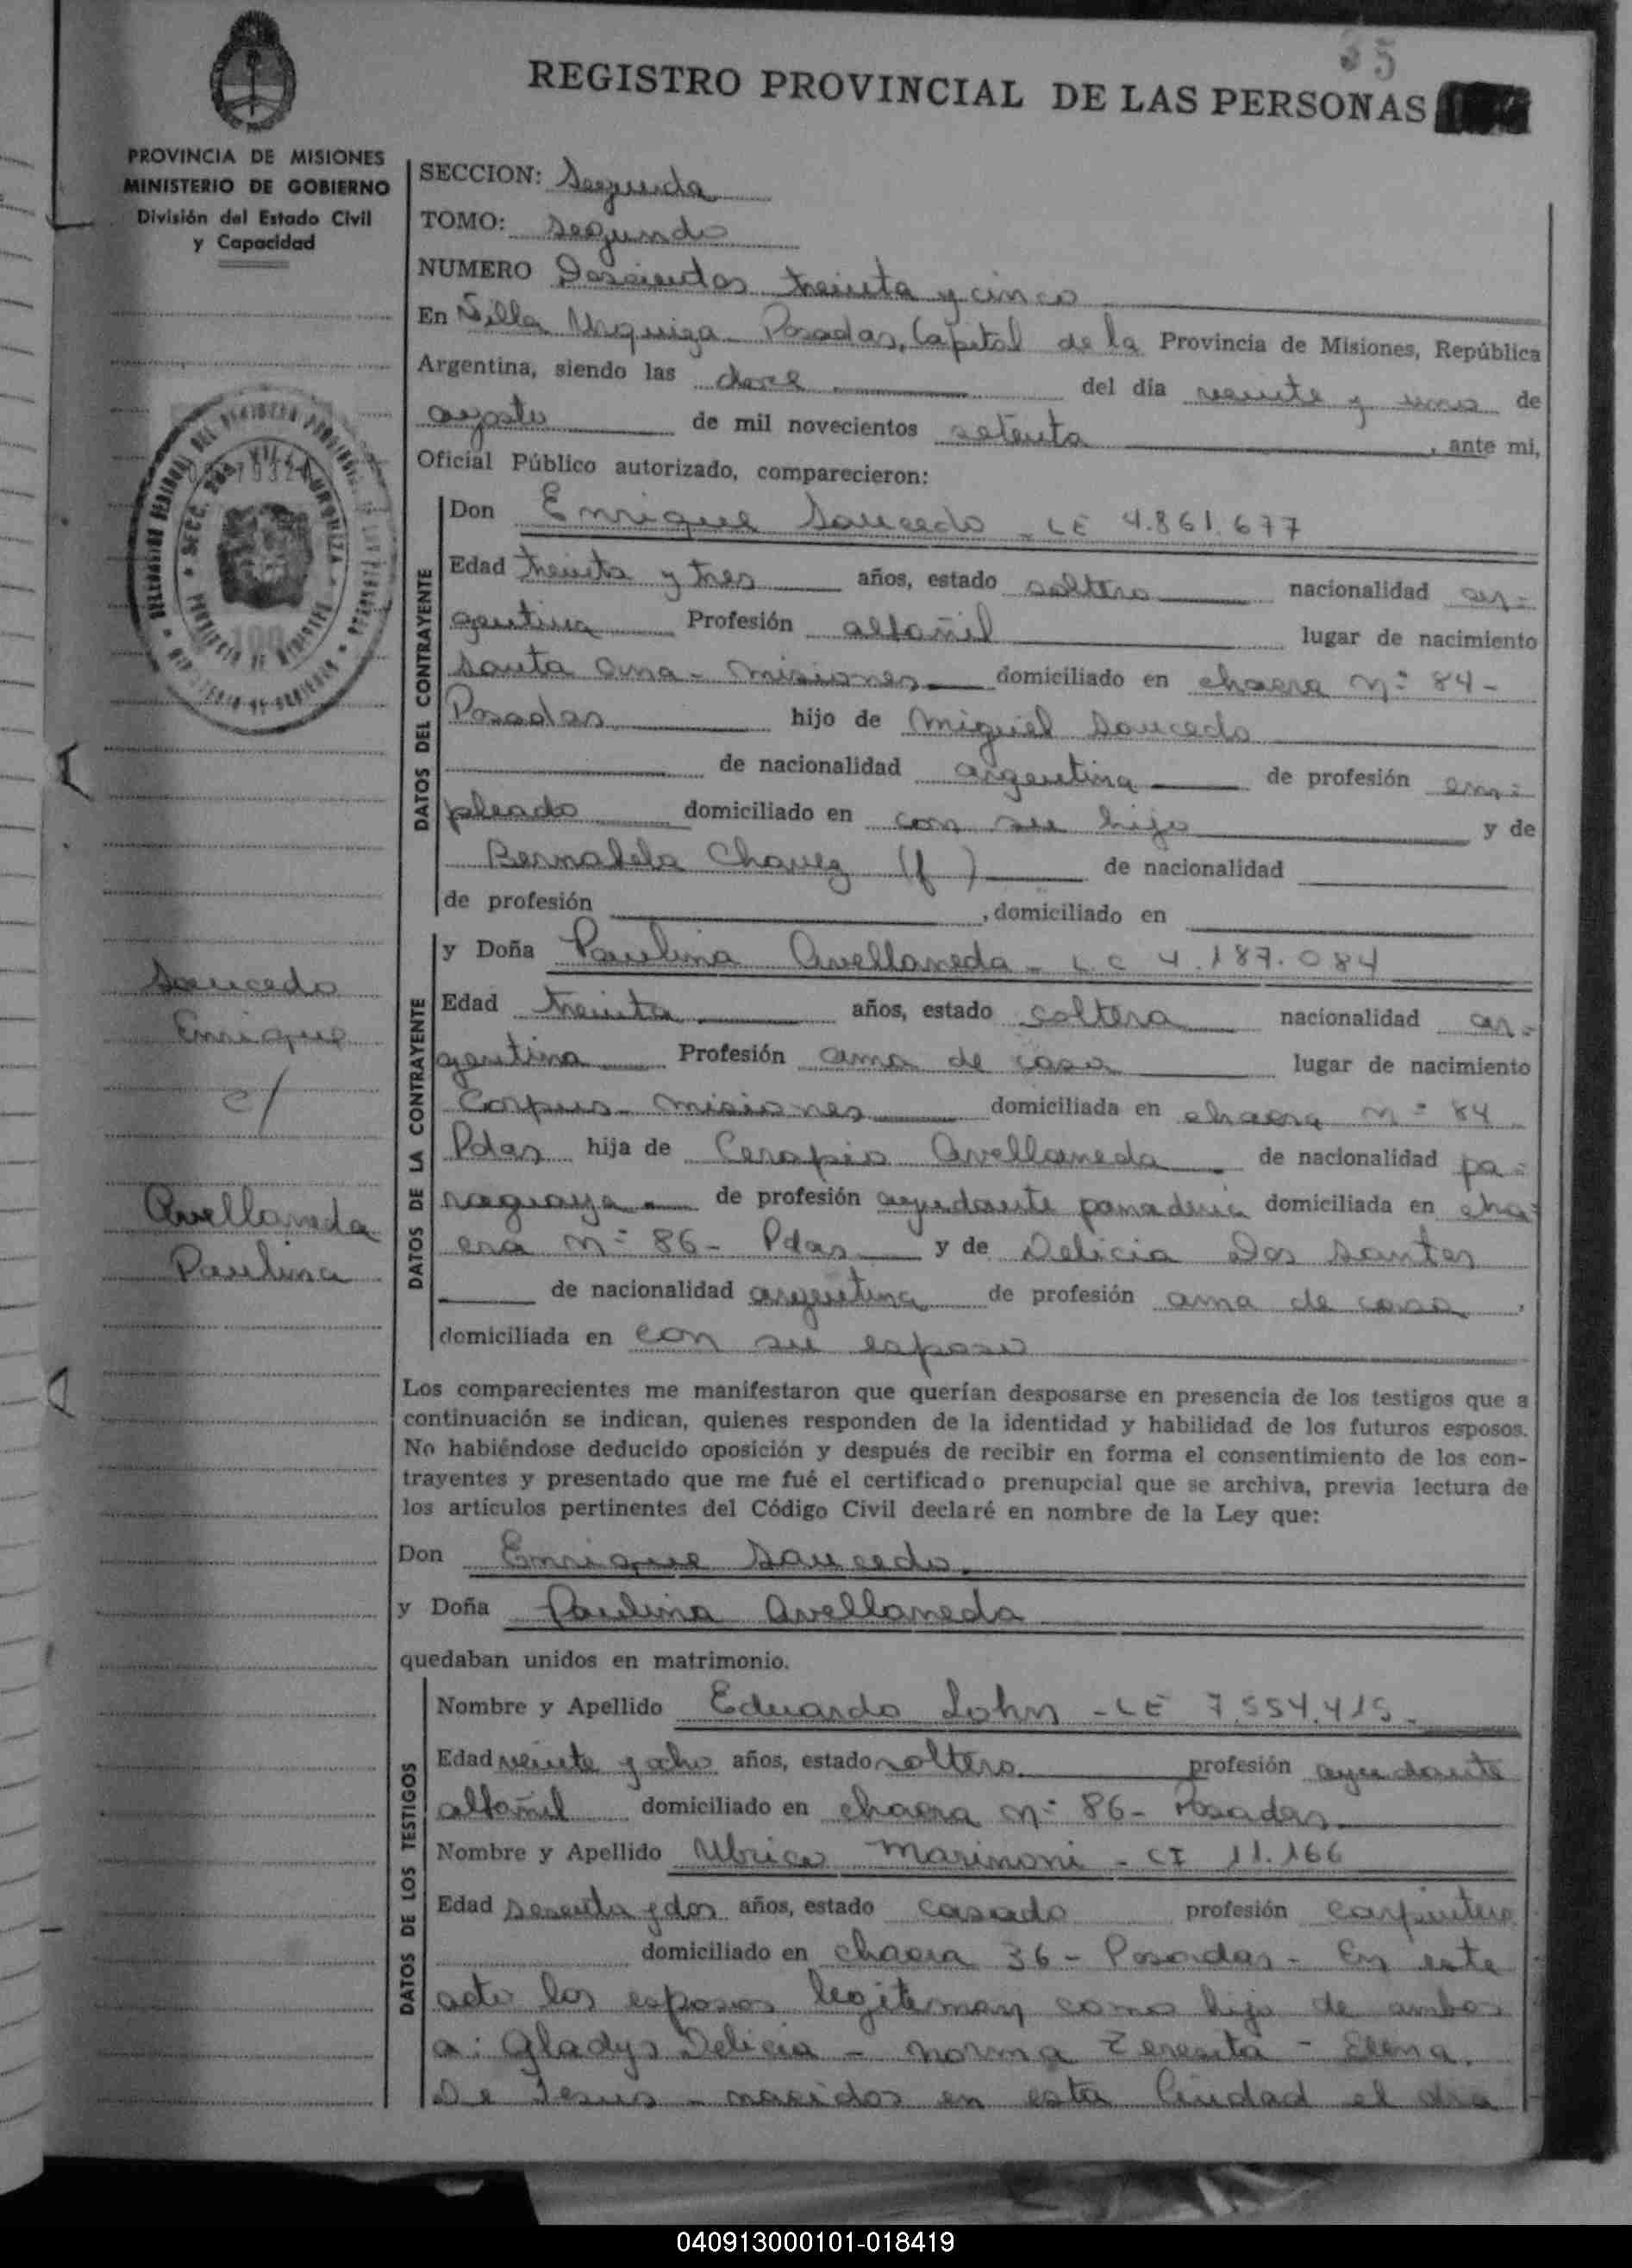 35
REGISTRO PROVINCIAL DE LAS PERSONAS
PROVINCIA DE MISIONES
MINISTERIO DE GOBIERNO
División del Estado Civil
y Capacidad
SECCION: Segunda
TOMO: Segundo
NUMERO Doscientos treinta y cinco
En Villa Urquiza - Posadas, Capital de la Provincia de Misiones, República
Argentina, siendo las doce del día veinte y uno de
agosto de mil novecientos setenta, ante mi,
Oficial Público autorizado, comparecieron:
DATOS DEL CONTRAYENTE
Don Enrique Saucedo - LE 4.861.677
Edad treinta y tres años, estado soltero nacionalidad ar-
gentina Profesión albañil lugar de nacimiento
Santa Ana - Misiones domiciliado en chacra Nº 84 -
Posadas hijo de Miguel Saucedo
de nacionalidad argentina de profesión em-
pleado domiciliado en con su hijo y de
Bernabela Chavez (f) de nacionalidad
de profesión , domiciliado en
DATOS DE LA CONTRAYENTE
y Doña Paulina Avellaneda - L C 4.187.084
Edad treinta años, estado soltera nacionalidad ar-
gentina Profesión ama de casa lugar de nacimiento
Corpus - Misiones domiciliada en chacra Nº 84
Pdas hija de Cerapio Avellaneda de nacionalidad pa-
raguaya de profesión ayudante panaderia domiciliada en cha-
cra Nº 86 - Pdas y de Delicia Dos Santos
de nacionalidad argentina de profesión ama de casa,
domiciliada en con su esposo
Saucedo
Enrique
c/
Avellaneda
Paulina
Los comparecientes me manifestaron que querían desposarse en presencia de los testigos que a
continuación se indican, quienes responden de la identidad y habilidad de los futuros esposos.
No habiéndose deducido oposición y después de recibir en forma el consentimiento de los con-
trayentes y presentado que me fué el certificado prenupcial que se archiva, previa lectura de
los artículos pertinentes del Código Civil declaré en nombre de la Ley que:
Don Enrique Saucedo
y Doña Paulina Avellaneda
quedaban unidos en matrimonio.
DATOS DE LOS TESTIGOS
Nombre y Apellido Eduardo Lohn - LE 7.554.415.
Edad veinte y ocho años, estado soltero profesión ayudante
albañil domiciliado en chacra Nº 86 - Posadas
Nombre y Apellido Ubrico Marinoni - CI 11.166
Edad sesenta y dos años, estado casado profesión carpintero
domiciliado en chacra 36 - Posadas - En este
acto los esposos legitiman como hijo de ambos
a: Gladys Delicia - Norma Teresita - Elena
De Jesus - nacidos en esta Ciudad el dia
040913000101-018419